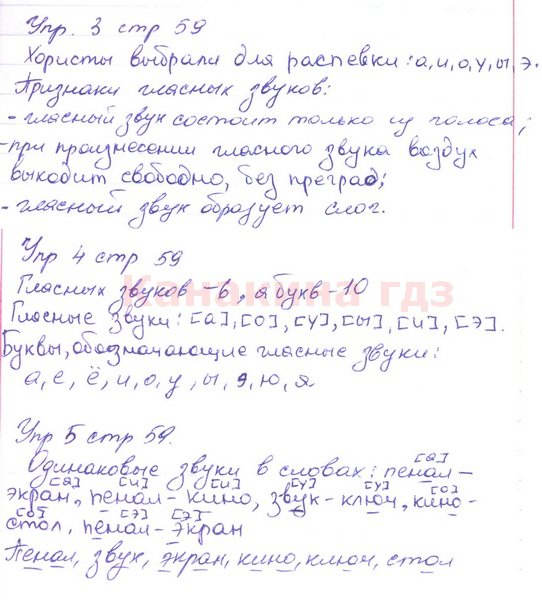 Упр. 3 стр 59
Хористы выбрали для распевки: а, и, о, у, ы, э.
Признаки гласных звуков:
- гласный звук состоит только из голоса;
- при произнесении гласного звука воздух
выходит свободно, без преград;
- гласный звук образует слог.
Упр 4 стр 59
Канакина гдз
Гласных звуков - 6, а букв - 10
Гласные звуки: [а], [о], [у], [ы], [и], [э].
Буквы, обозначающие гласные звуки:
а, е, ё, и, о, у, ы, э, ю, я
Упр 5 стр 59.
Одинаковые звуки в словах: пенал -
[а]
[а] [и] [и] [у] [у] [о]
экран, пенал - кино, звук - ключ, кино -
[о] [э] [э]
стол, пенал - экран
Пенал, звук, экран, кино, ключ, стол